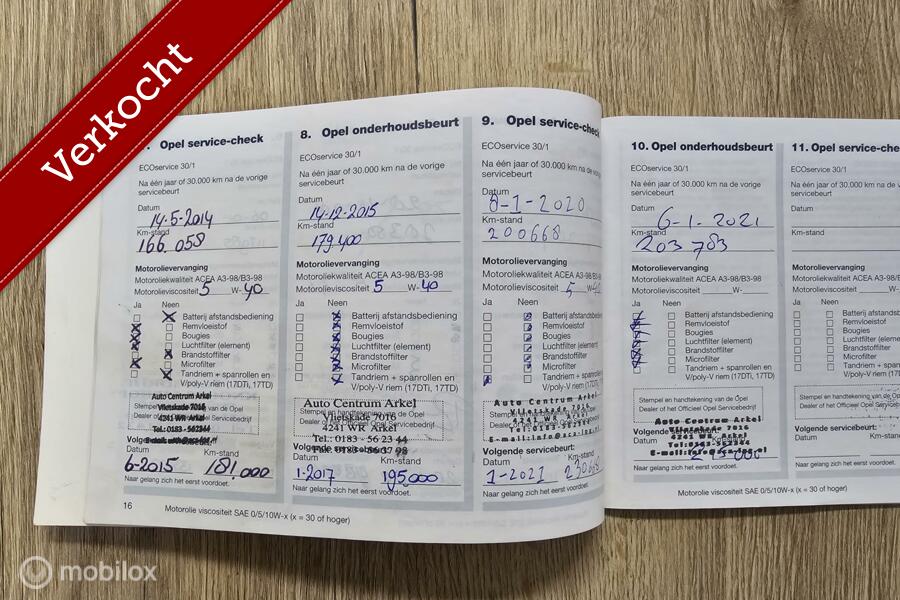 Verkocht
Opel service-check
ECOservice 30/1
Na één jaar of 30.000 km na de vorige
servicebeurt
Datum
14-5-2014
Km-stand
166.058
Motorolievervanging
Motoroliekwaliteit ACEA A3-98/B3-98
Motorolieviscositeit 5 W-40
Ja Neen
Batterij afstandsbediening
Remvloeistof
Bougies
Luchtfilter (element)
Brandstoffilter
Microfilter
Tandriem + spanrollen en
V/poly-V riem (17DTi, 17TD)
Auto Centrum Arkel
Vlietskade 7016
4241 WR Arkel
Tel.: 0183-562344
Datum Km-stand
6-2015 181.000
Naar gelang zich het eerst voordoet.
16 Motorolie viscositeit SAE 0/5/10W-x (x = 30 of hoger)
8. Opel onderhoudsbeurt
ECOservice 30/1
Na één jaar of 30.000 km na de vorige
servicebeurt
Datum
14-12-2015
Km-stand
179.400
Motorolievervanging
Motoroliekwaliteit ACEA A3-98/B3-98
Motorolieviscositeit 5 W-40
Ja Neen
Batterij afstandsbediening
Remvloeistof
Bougies
Luchtfilter (element)
Brandstoffilter
Microfilter
Tandriem + spanrollen en
V/poly-V riem (17DTi, 17TD)
Auto Centrum Arkel
Stempel en handtekening van de Opel
Vlietskade 7016
4241 WR Arkel
Tel.: 0183 - 56 23 44
Datum Km-stand
1-2017 195.000
Naar gelang zich het eerst voordoet.
9. Opel service-check
ECOservice 30/1
Na één jaar of 30.000 km na de vorige
servicebeurt
Datum
8-1-2020
Km-stand
200668
Motorolievervanging
Motoroliekwaliteit ACEA A3-98/B3-98
Motorolieviscositeit 5 W-40
Ja Neen
Batterij afstandsbediening
Remvloeistof
Bougies
Luchtfilter (element)
Brandstoffilter
Microfilter
Tandriem + spanrollen en
V/poly-V riem (17DTi, 17TD)
Auto Centrum Arkel
Vlietskade 7016
4241 WR Arkel
Tel:0183-562344
Volgende servicebeurt:
Datum Km-stand
1-2021
Naar gelang zich het eerst voordoet.
10. Opel onderhoudsbeurt
ECOservice 30/1
Na één jaar of 30.000 km na de vorige
servicebeurt
Datum
6-1-2021
Km-stand
203783
Motorolievervanging
Motoroliekwaliteit ACEA A3-98/B3-98
Motorolieviscositeit W-
Ja Neen
Batterij afstandsbediening
Remvloeistof
Bougies
Luchtfilter (element)
Brandstoffilter
Microfilter
Tandriem + spanrollen en
V/poly-V riem (17DTi, 17TD)
Stempel en handtekening van de Opel
Dealer of het Officieel Opel Servicebedrijf
Auto Centrum Arkel
Vlietskade 7016
4241 WR Arkel
Tel:0183-562344
Datum Km-stand
Naar gelang zich het eerst voordoet.
Motorolie viscositeit SAE 0/5/10W-x (x = 30 of hoger)
11. Opel service-che
ECOservice 30/1
Na één jaar of 30.000 km na de v
servicebeurt
Datum
Km-stand
Motorolievervanging
Motoroliekwaliteit ACEA A3-98/B
Motorolieviscositeit W-
Ja Neen
Batterij afstandsb
Remvloeistof
Bougies
Luchtfilter (elemen
Brandstoffilter
Microfilter
Tandriem + spanr
V/poly-V riem (17
Stempel en handtekening van de
Dealer of het Officieel Opel Serv
Volgende servicebeurt:
Datum Km-stan
Naar gelang zich het eerst voordoet.
mobilox